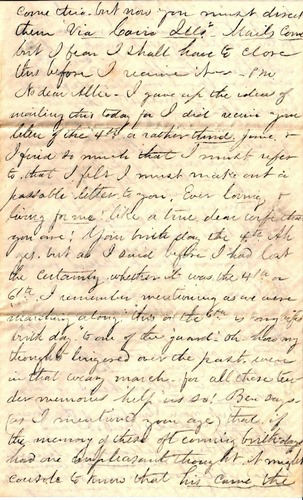 come this. but now you must direct
them Via Cairo Ills. Mails come
but I fear I shall have to close
this before I receive it — P.M.
No dear Allie — I gave up the idea of
mailing this today for I did receive your
letter of the 4th a rather time, &
I find so much that I must refer
to that I felt I must make out a
passable letter to you. Ever loving &
living for me! like a true, dear wife that
you are! Your birth day the 4th Ah
yes. but as I said before I had lost
the certainty whether it was the 4th or
6th. I remember mentioning as we were
marching along "this the 6th is my wife's
birth day" to one of the guard. oh how my
thought lingered over the past, even
in that weary march. for all these ten
der memories help us so! Ben says
(as I mentioned your age) that if
the memory of these oft coming birth days
had one unpleasant thought, it might
console to know that his came the